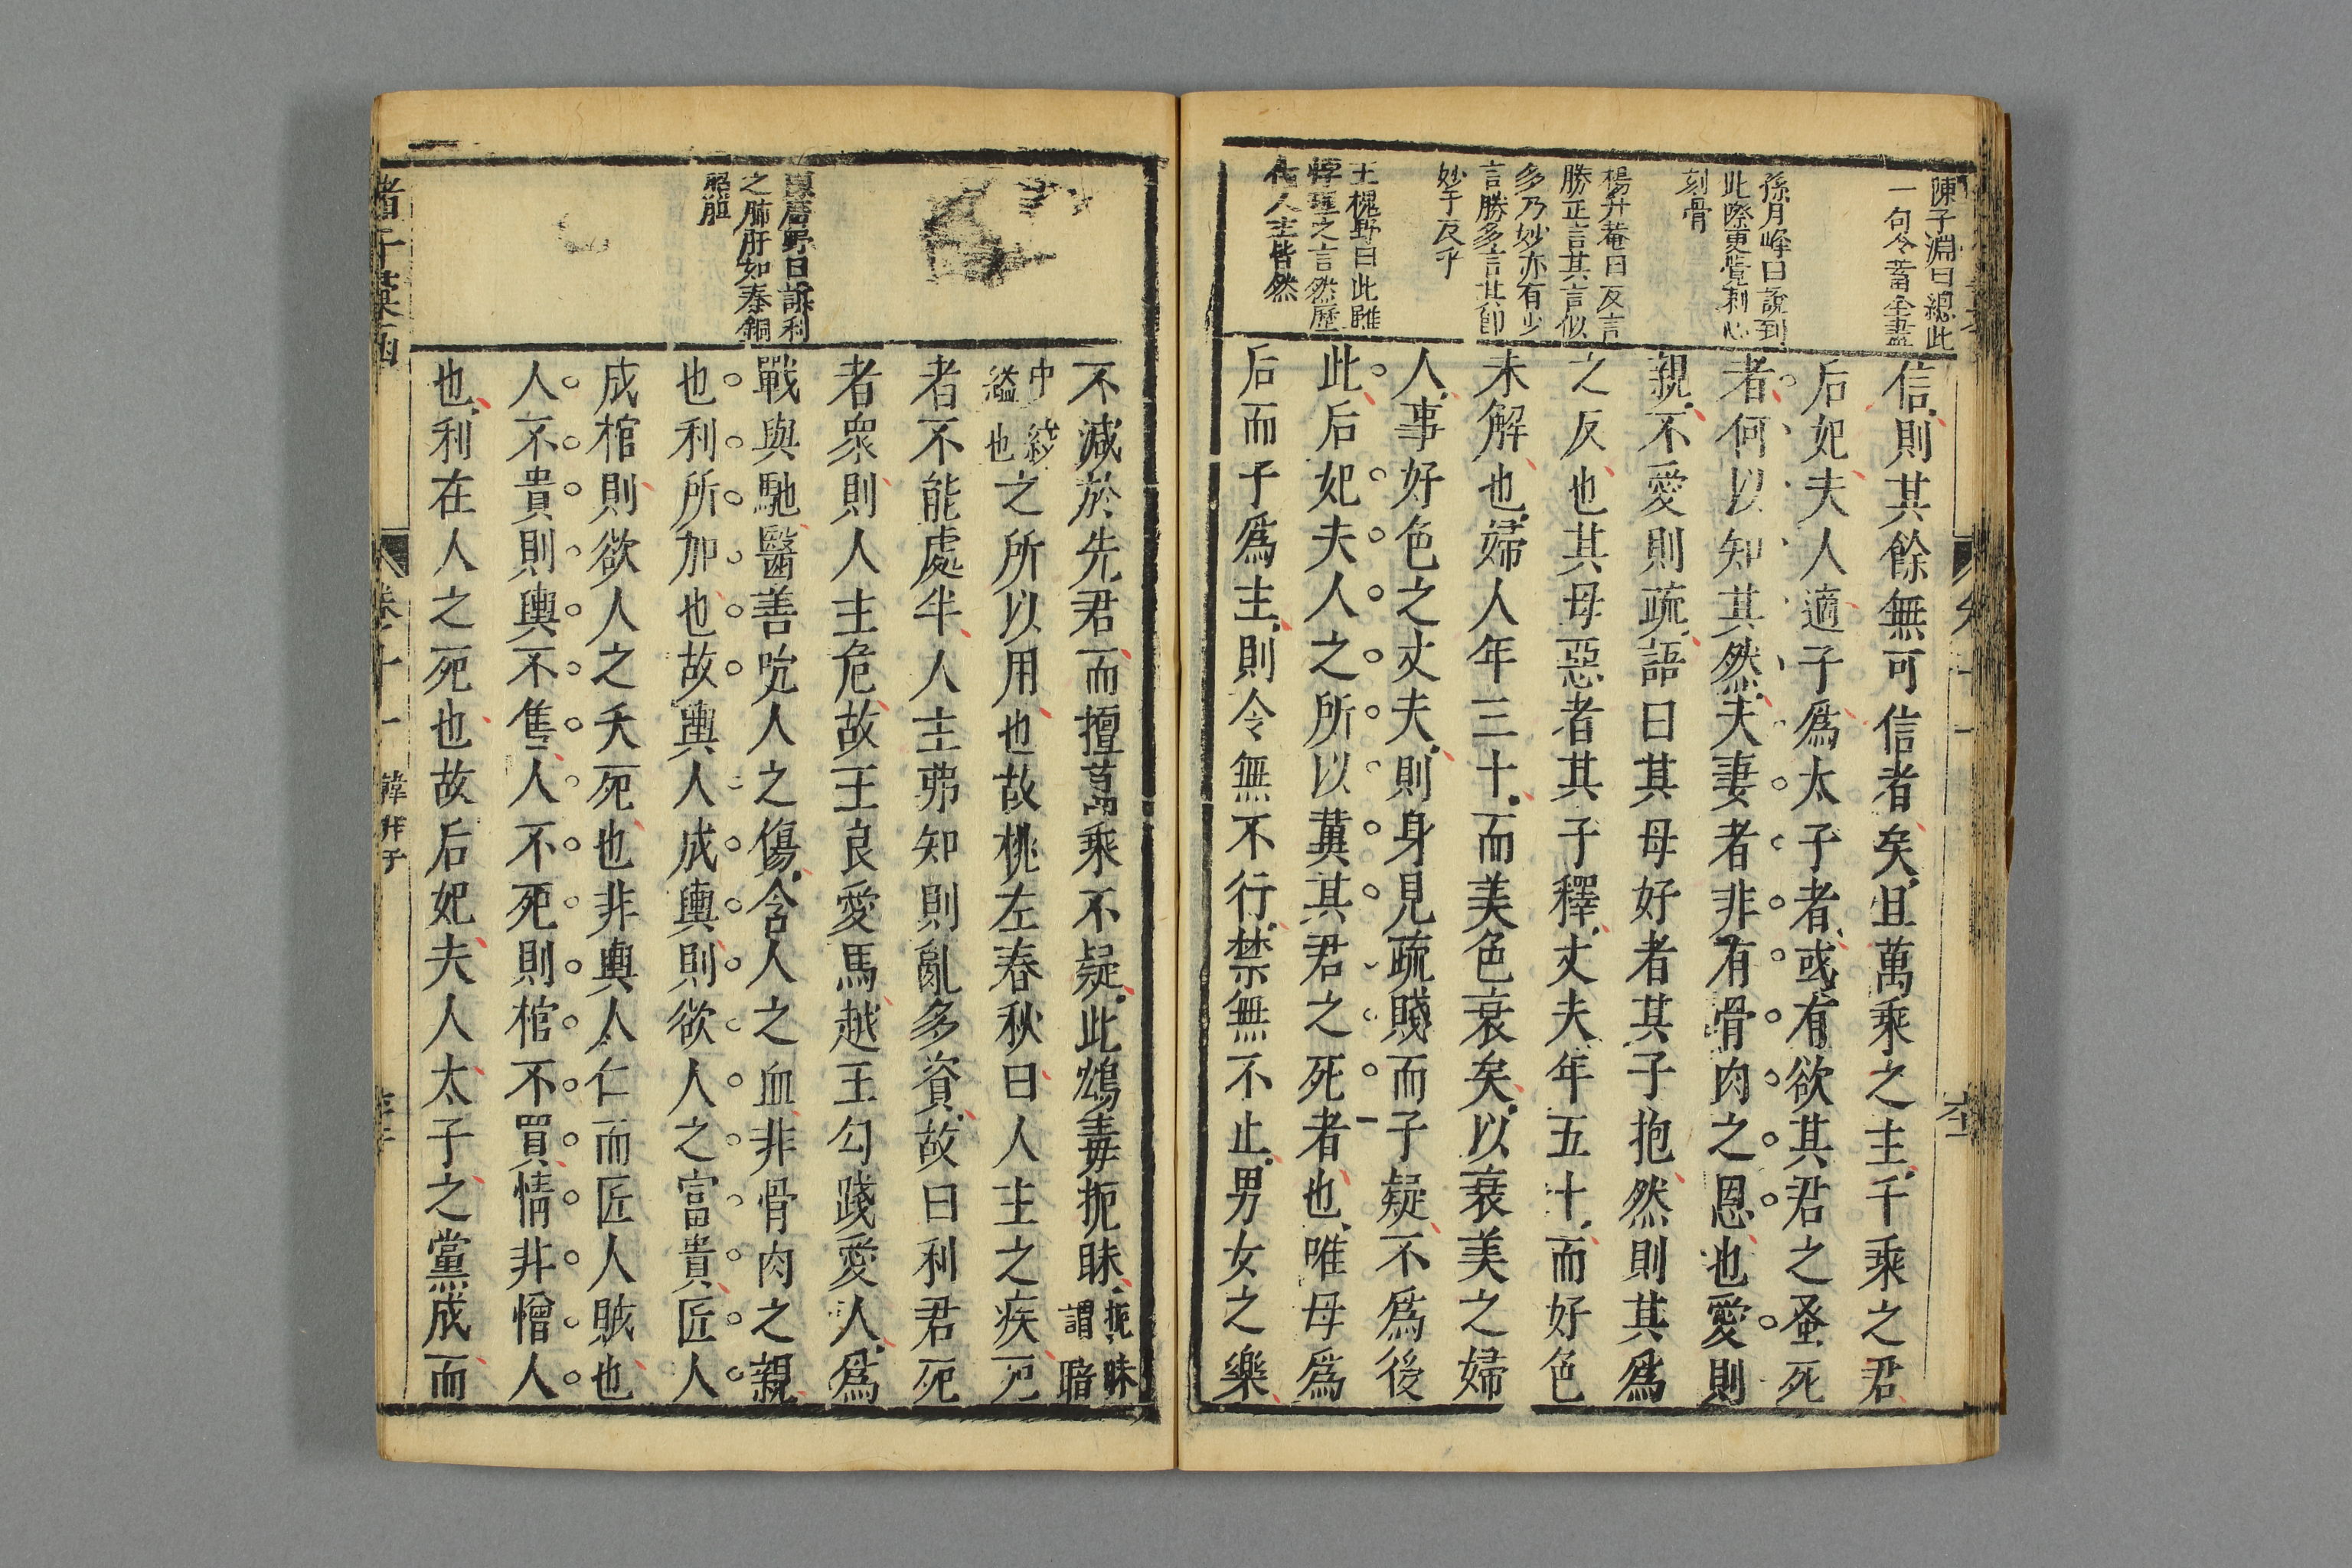 陳子淵曰總此
一句令昔全盡
孫月峰曰說到
此際更覺刺心
刻骨
楊升菴曰反言
勝正言其言似
多乃妙亦有少
言勝多言其卽
妙于反乎
王槐野曰此雖
悖理之言然歷
代人主皆然
信則其餘無可信者矣且萬乘之主千乘之君
后妃夫人適子爲太子者或有欲其君之蚤死
者何以知其然夫妻者非有骨肉之恩也愛則
親不愛則疏語曰其母好者其子抱然則其爲
之反也其母惡者其子釋丈夫年五十而好色
未解也婦人年三十而美色衰矣以衰美之婦
人事好色之丈夫則身見疏賤而子疑不爲後
此后妃夫人之所以冀其君之死者也唯母爲
后而子爲主則令無不行禁無不止男女之樂
野曰訴利
之肺肝如秦銅
照胆
不減於先君而擅萬乘不疑此鴆毒扼昧扼昧謂暗
中絞縊也之所以用也故桃左春秋曰人主之疾死
者不能處半人主弗知則亂多資故曰利君死
者衆則人主危故王良愛馬越王勾踐愛人爲
戰與馳醫善吮人之傷含人之血非骨肉之親
也利所加也故輿人成輿則欲人之富貴匠人
成棺則欲人之夭死也非輿人仁而匠人賊也
人不貴則輿不售人不死則棺不買情非憎人
也利在人之死也故后妃夫人太子之黨成而
卷十一 韓非子